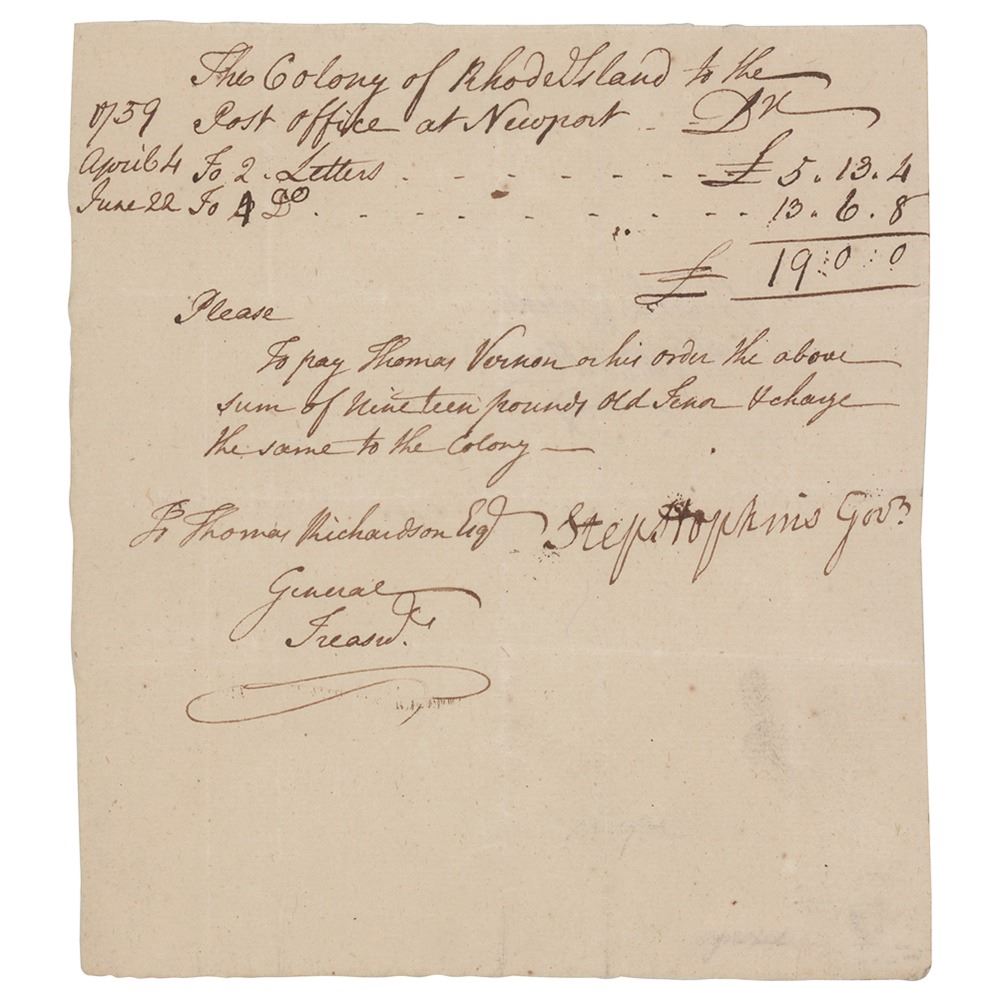 The Colony of Rhode Island to the
1759 Post office at Newport - Dr
April 4 To 2. Letters - - - - - - - £ 5. 13. 4
June 22 To 4 Do. - - - - - - - - 13. 6. 8
£ 19 : 0 : 0
Please
To pay Thomas Vernon or his order the above
sum of Nineteen pounds Old Tenor & charge
the same to the Colony —
To Thomas Richardson Esqr Step Hopkins Govr
General
Treasurr.